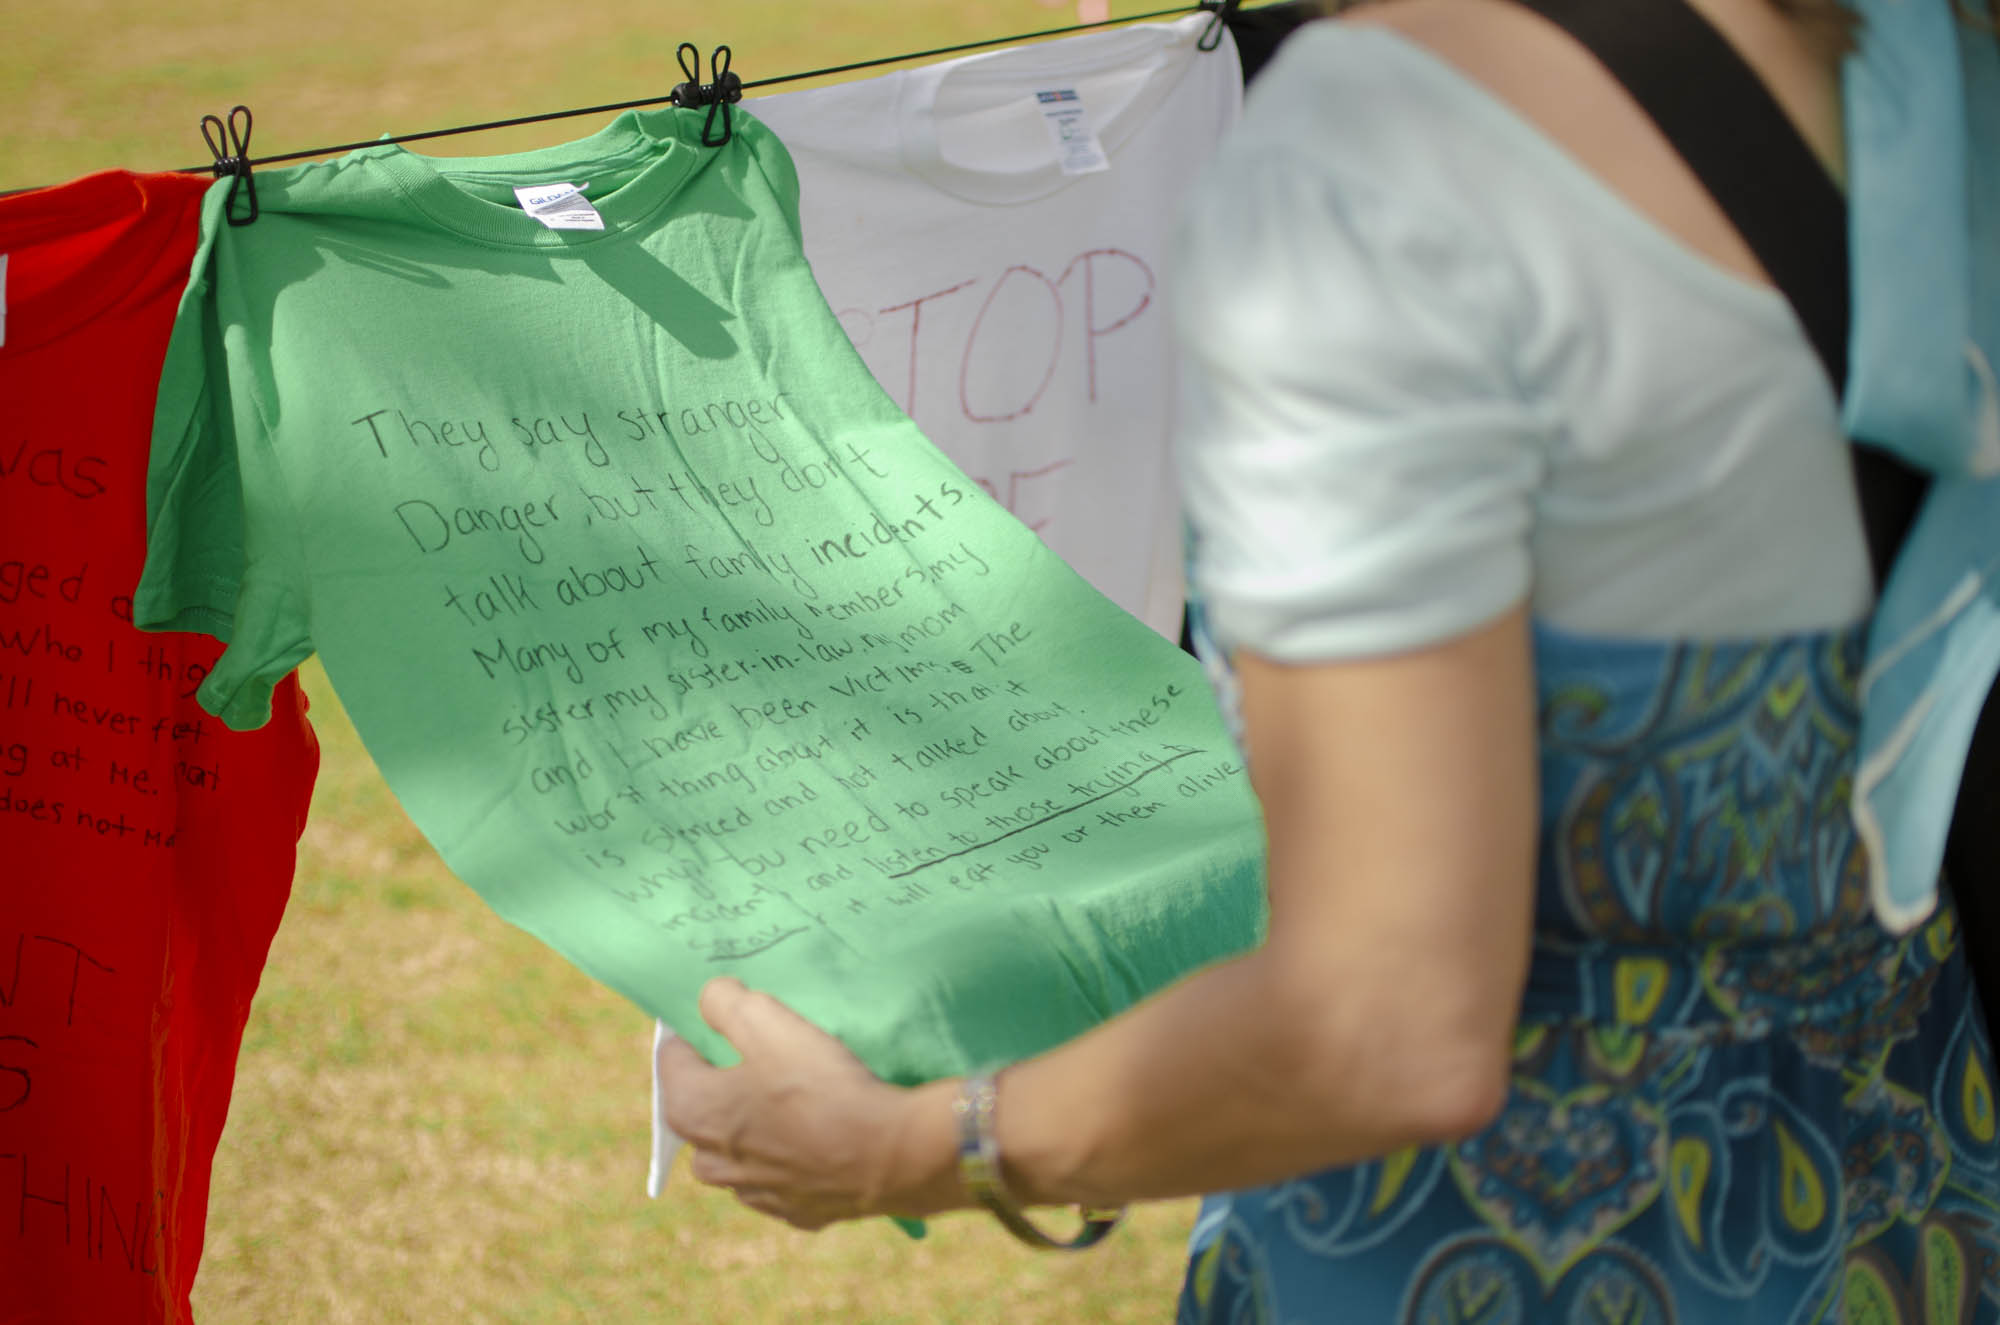 GILDAN
They say stranger
Danger, but they don't
talk about family incidents.
Many of my family members, my
sister, my sister-in-law, my mom
and I have been victims. The
worst thing about it is that it
is silenced and not talked about.
why? You need to speak about these
incidents and listen to those trying to
speak or it will eat you or them alive
STOP
was
ged a
who I thig
'll never fet
g at me.
does not me
NT
S
THING